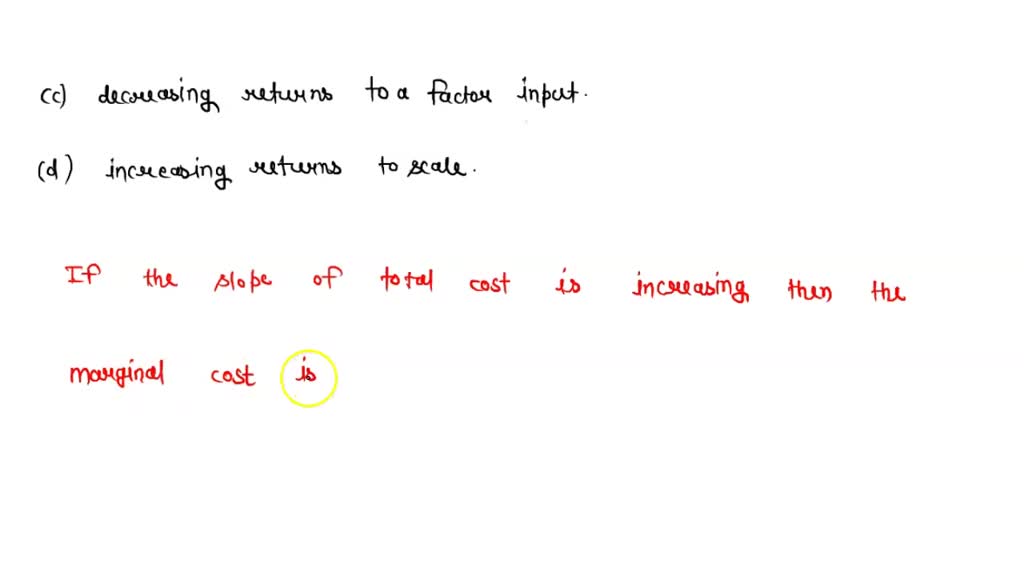 (c) decreasing returns to a factor input.
(d) increasing returns to scale.
If the slope of total cost is increasing then the
marginal cost is